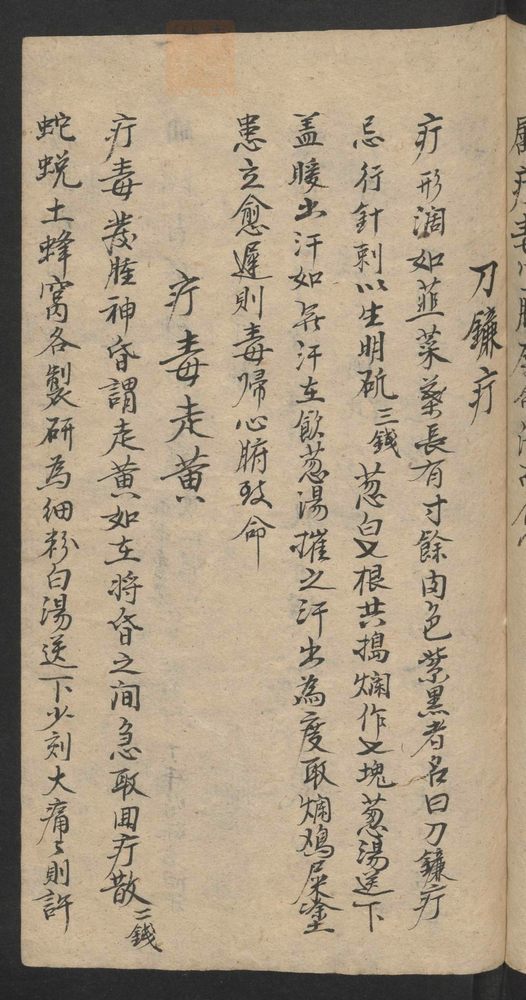 刀鐮疔
疔形濶如韮菜葉長有寸餘肉色紫黑者名曰刀鐮疔
忌行針刺以生明矾三錢葱白七根共搗爛作七塊葱湯送下
盖暖出汗如無汗在飲葱湯摧之汗出為度取爛鸡屎塗
患立愈遲則毒歸心腑致命
疔毒走黄
疔毒發腫神昏謂走黄如在将昏之间急取囬疔散二錢
蛇蜕土蜂窩各製研為细粉白湯送下少刻大痛〻則許